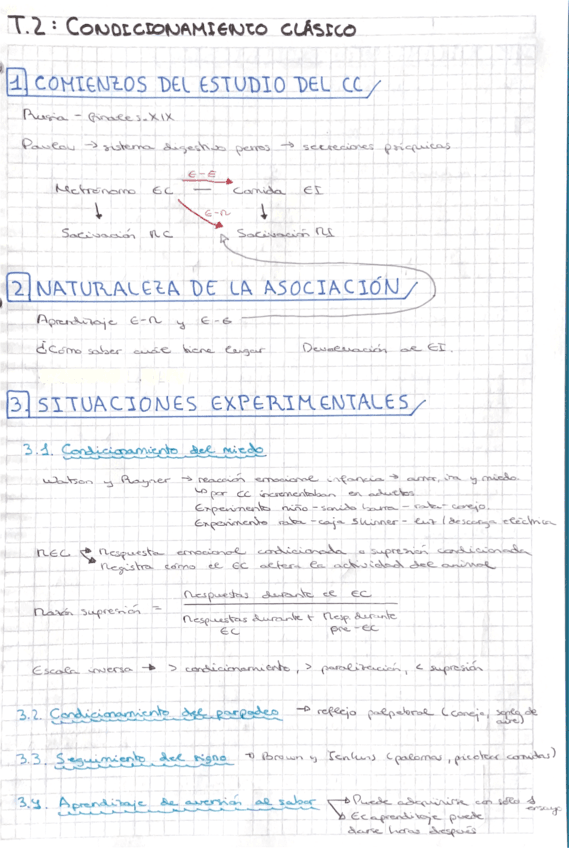 T.2: CONDICIONAMIENTO CLÁSICO
1 COMIENZOS DEL ESTUDIO DEL CC
Rusia - finales s.XIX
Pavlov → sistema digestivo perros → secreciones psíquicas
E-E
Metrónomo EC — Comida EI
E-R
Salivación RC Salivación RI
2 NATURALEZA DE LA ASOCIACIÓN
Aprendizaje E-R y E-E
¿Cómo saber cuál tiene lugar Devaluación de EI.
3. SITUACIONES EXPERIMENTALES
3.1. Condicionamiento del miedo
Watson y Rayner → reacción emocional infancia → amor, ira y miedo
↳ por CC incrementaban en adultos
Experimento niño - sonido barra - rata - conejo.
Experimento rata - caja Skinner - luz / descarga eléctrica
REC → Respuesta emocional condicionada o supresión condicionada
→ Registra cómo el EC altera la actividad del animal
Razón supresión = Respuestas durante el EC
Respuestas durante EC + Resp. durante pre-EC
Escala inversa → > condicionamiento, > paralización, < supresión
3.2. Condicionamiento del parpadeo → reflejo palpebral (conejo, soplo de aire)
3.3. Seguimiento del signo → Brown y Jenkins (palomas, picotear comidas)
3.4. Aprendizaje de aversión al sabor → Puede adquirirse con sólo 1 ensayo
→ El aprendizaje puede
darse horas después